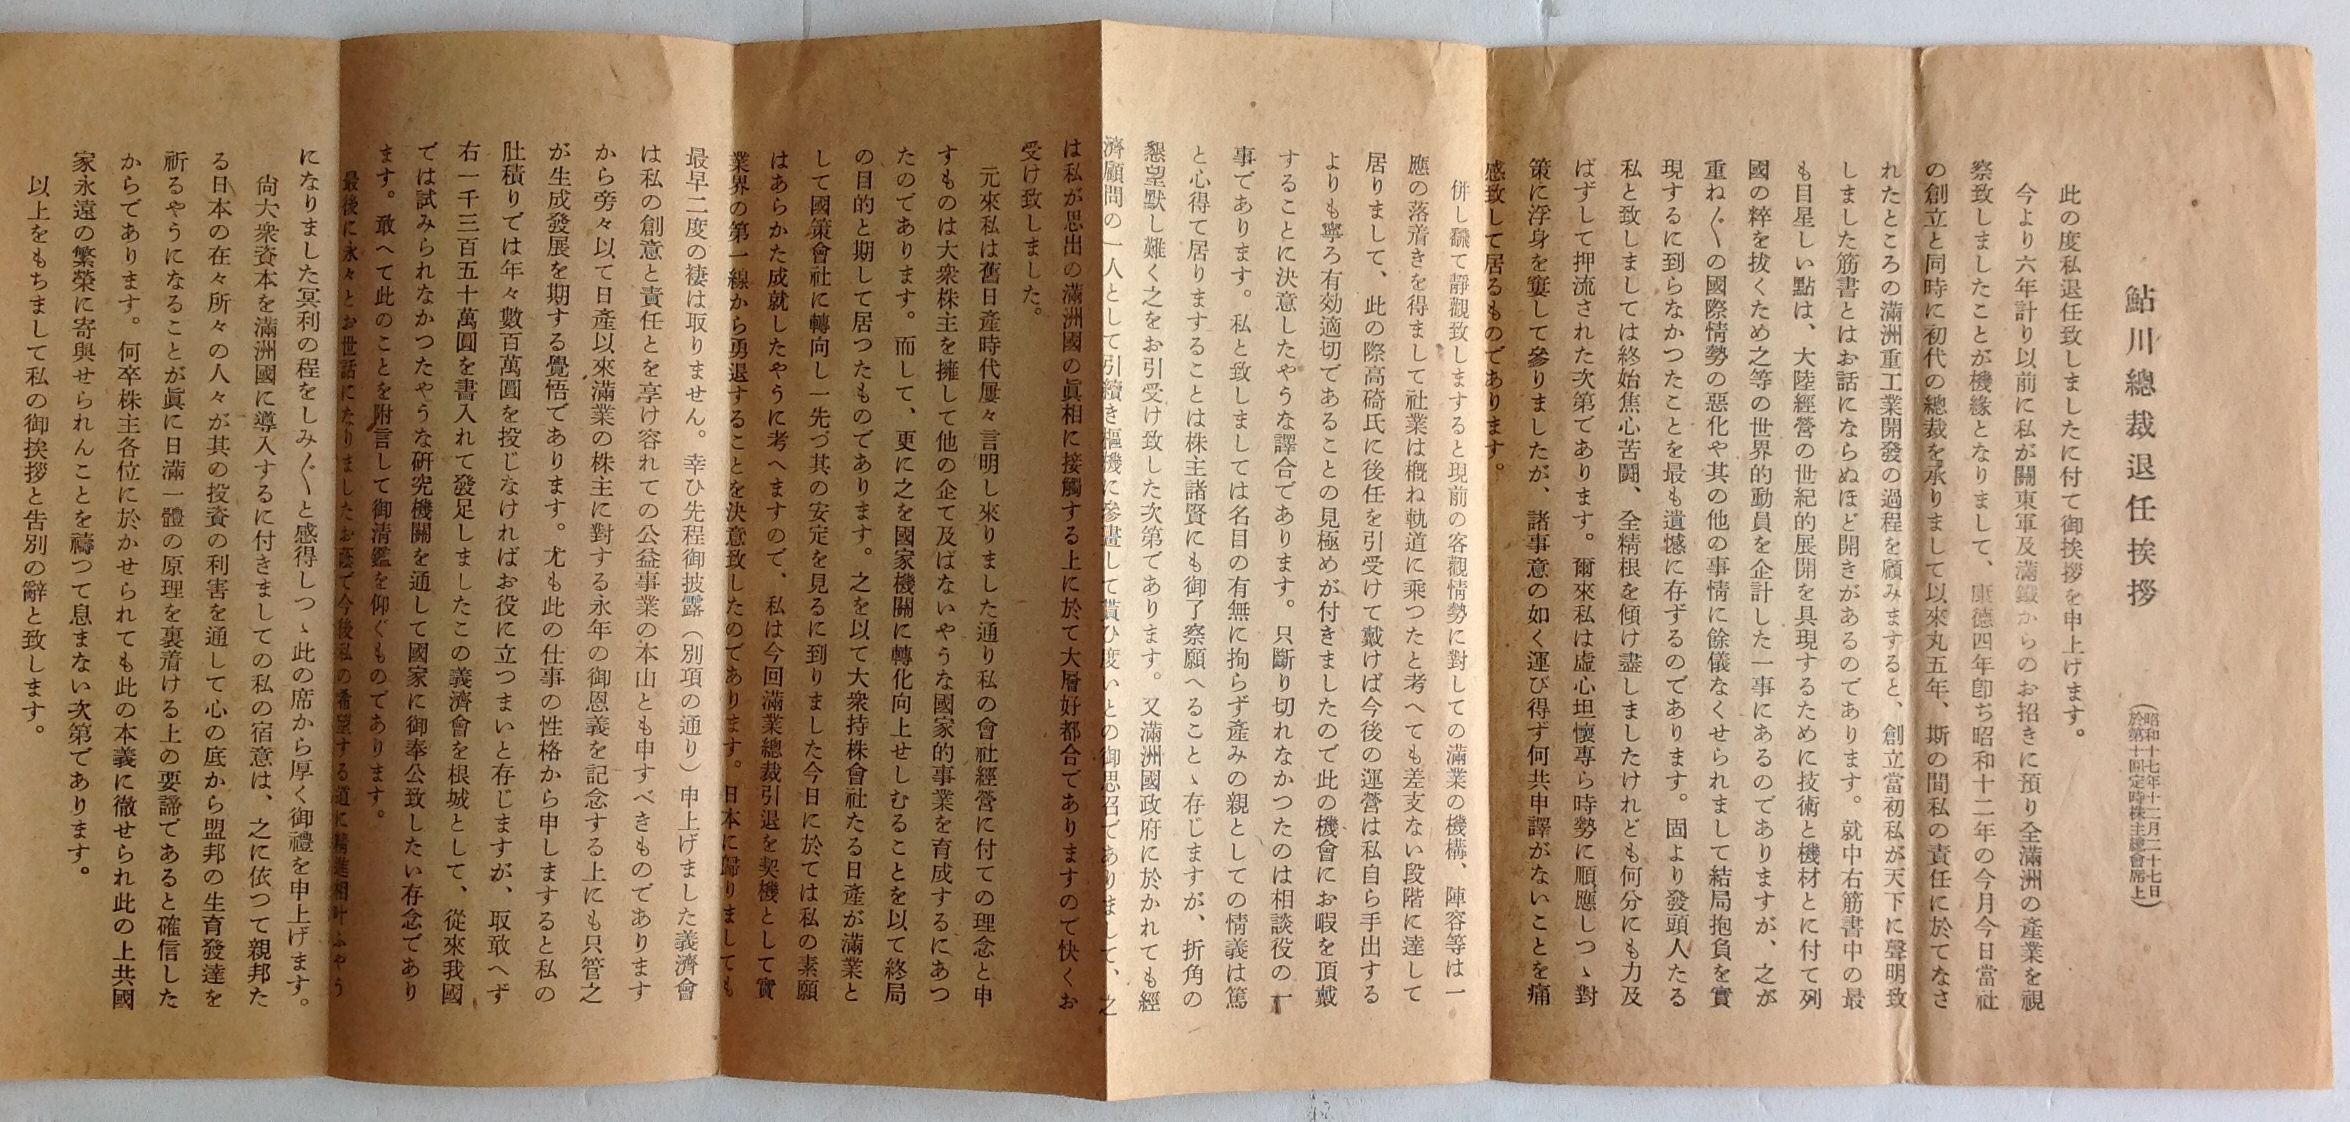 鮎川總裁退任挨拶
（昭和十七年十二月二十七日
於第十回定時株主總會席上）
此の度私退任致しましたに付て御挨拶を申上げます。
今より六年計り以前に私が關東軍及滿鐵からのお招きに預り全滿洲の產業を視
察致しましたことが機緣となりまして、康德四年卽ち昭和十二年の今月今日當社
の創立と同時に初代の總裁を承りまして以來丸五年、斯の間私の責任に於てなさ
れたところの滿洲重工業開發の過程を顧みますると、創立當初私が天下に聲明致
しました筋書とはお話にならぬほど開きがあるのであります。就中右筋書中の最
も目星しい點は、大陸經營の世紀的展開を具現するために技術と機材とに付て列
國の粹を拔くため之等の世界的動員を企計した一事にあるのでありますが、之が
重ね〴〵の國際情勢の惡化や其の他の事情に餘儀なくせられまして結局抱負を實
現するに到らなかつたことを最も遺憾に存ずるのであります。固より發頭人たる
私と致しましては終始焦心苦鬪、全精根を傾け盡しましたけれども何分にも力及
ばずして押流された次第であります。爾來私は虛心坦懷專ら時勢に順應しつゝ對
策に浮身を窶して參りましたが、諸事意の如く運び得ず何共申譯がないことを痛
感致して居るものであります。
併し飜て靜觀致しますると現前の客觀情勢に對しての滿業の機構、陣容等は一
應の落着きを得まして社業は槪ね軌道に乘つたと考へても差支ない段階に達して
居りまして、此の際高碕氏に後任を引受けて戴けば今後の運營は私自ら手出する
よりも寧ろ有効適切であることの見極めが付きましたので此の機會にお暇を頂戴
することに決意したやうな譯合であります。只斷り切れなかつたのは相談役の一
事であります。私と致しましては名目の有無に拘らず產みの親としての情義は篤
と心得て居りますることは株主諸賢にも御了察願へることゝ存じますが、折角の
懇望默し難く之をお引受け致した次第であります。又滿洲國政府に於かれても經
濟顧問の一人として引續き樞機に參畫して貰ひ度いとの御思召でありまして、之
は私が思出の滿洲國の眞相に接觸する上に於て大層好都合でありますので快くお
受け致しました。
元來私は舊日產時代屢々言明し來りました通り私の會社經營に付ての理念と申
すものは大衆株主を擁して他の企て及ばないやうな國家的事業を育成するにあつ
たのであります。而して、更に之を國家機關に轉化向上せしむることを以て終局
の目的と期して居つたものであります。之を以て大衆持株會社たる日產が滿業と
して國策會社に轉向し一先づ其の安定を見るに到りました今日に於ては私の素願
はあらかた成就したやうに考へますので、私は今回滿業總裁引退を契機として實
業界の第一線から勇退することを決意致したのであります。日本に歸りましても
最早二度の褄は取りません。幸ひ先程御披露（別項の通り）申上げました義濟會
は私の創意と責任とを享け容れての公益事業の本山とも申すべきものであります
から旁々以て日產以來滿業の株主に對する永年の御恩義を記念する上にも只管之
が生成發展を期する覺悟であります。尤も此の仕事の性格から申しますると私の
肚積りでは年々數百萬圓を投じなければお役に立つまいと存じますが、取敢へず
右一千三百五十萬圓を書入れて發足しましたこの義濟會を根城として、從來我國
では試みられなかつたやうな硏究機關を通して國家に御奉公致したい存念であり
ます。敢へて此のことを附言して御淸鑑を仰ぐものであります。
最後に永々とお世話になりましたお蔭で今後私の希望する道に精進相叶ふやう
になりました冥利の程をしみ〴〵と感得しつゝ此の席から厚く御禮を申上げます。
尙大衆資本を滿洲國に導入するに付きましての私の宿意は、之に依つて親邦た
る日本の在々所々の人々が其の投資の利害を通して心の底から盟邦の生育發達を
祈るやうになることが眞に日滿一體の原理を裏着ける上の要諦であると確信した
からであります。何卒株主各位に於かせられても此の本義に徹せられ此の上共國
家永遠の繁榮に寄與せられんことを禱つて息まない次第であります。
以上をもちまして私の御挨拶と吿別の辭と致します。